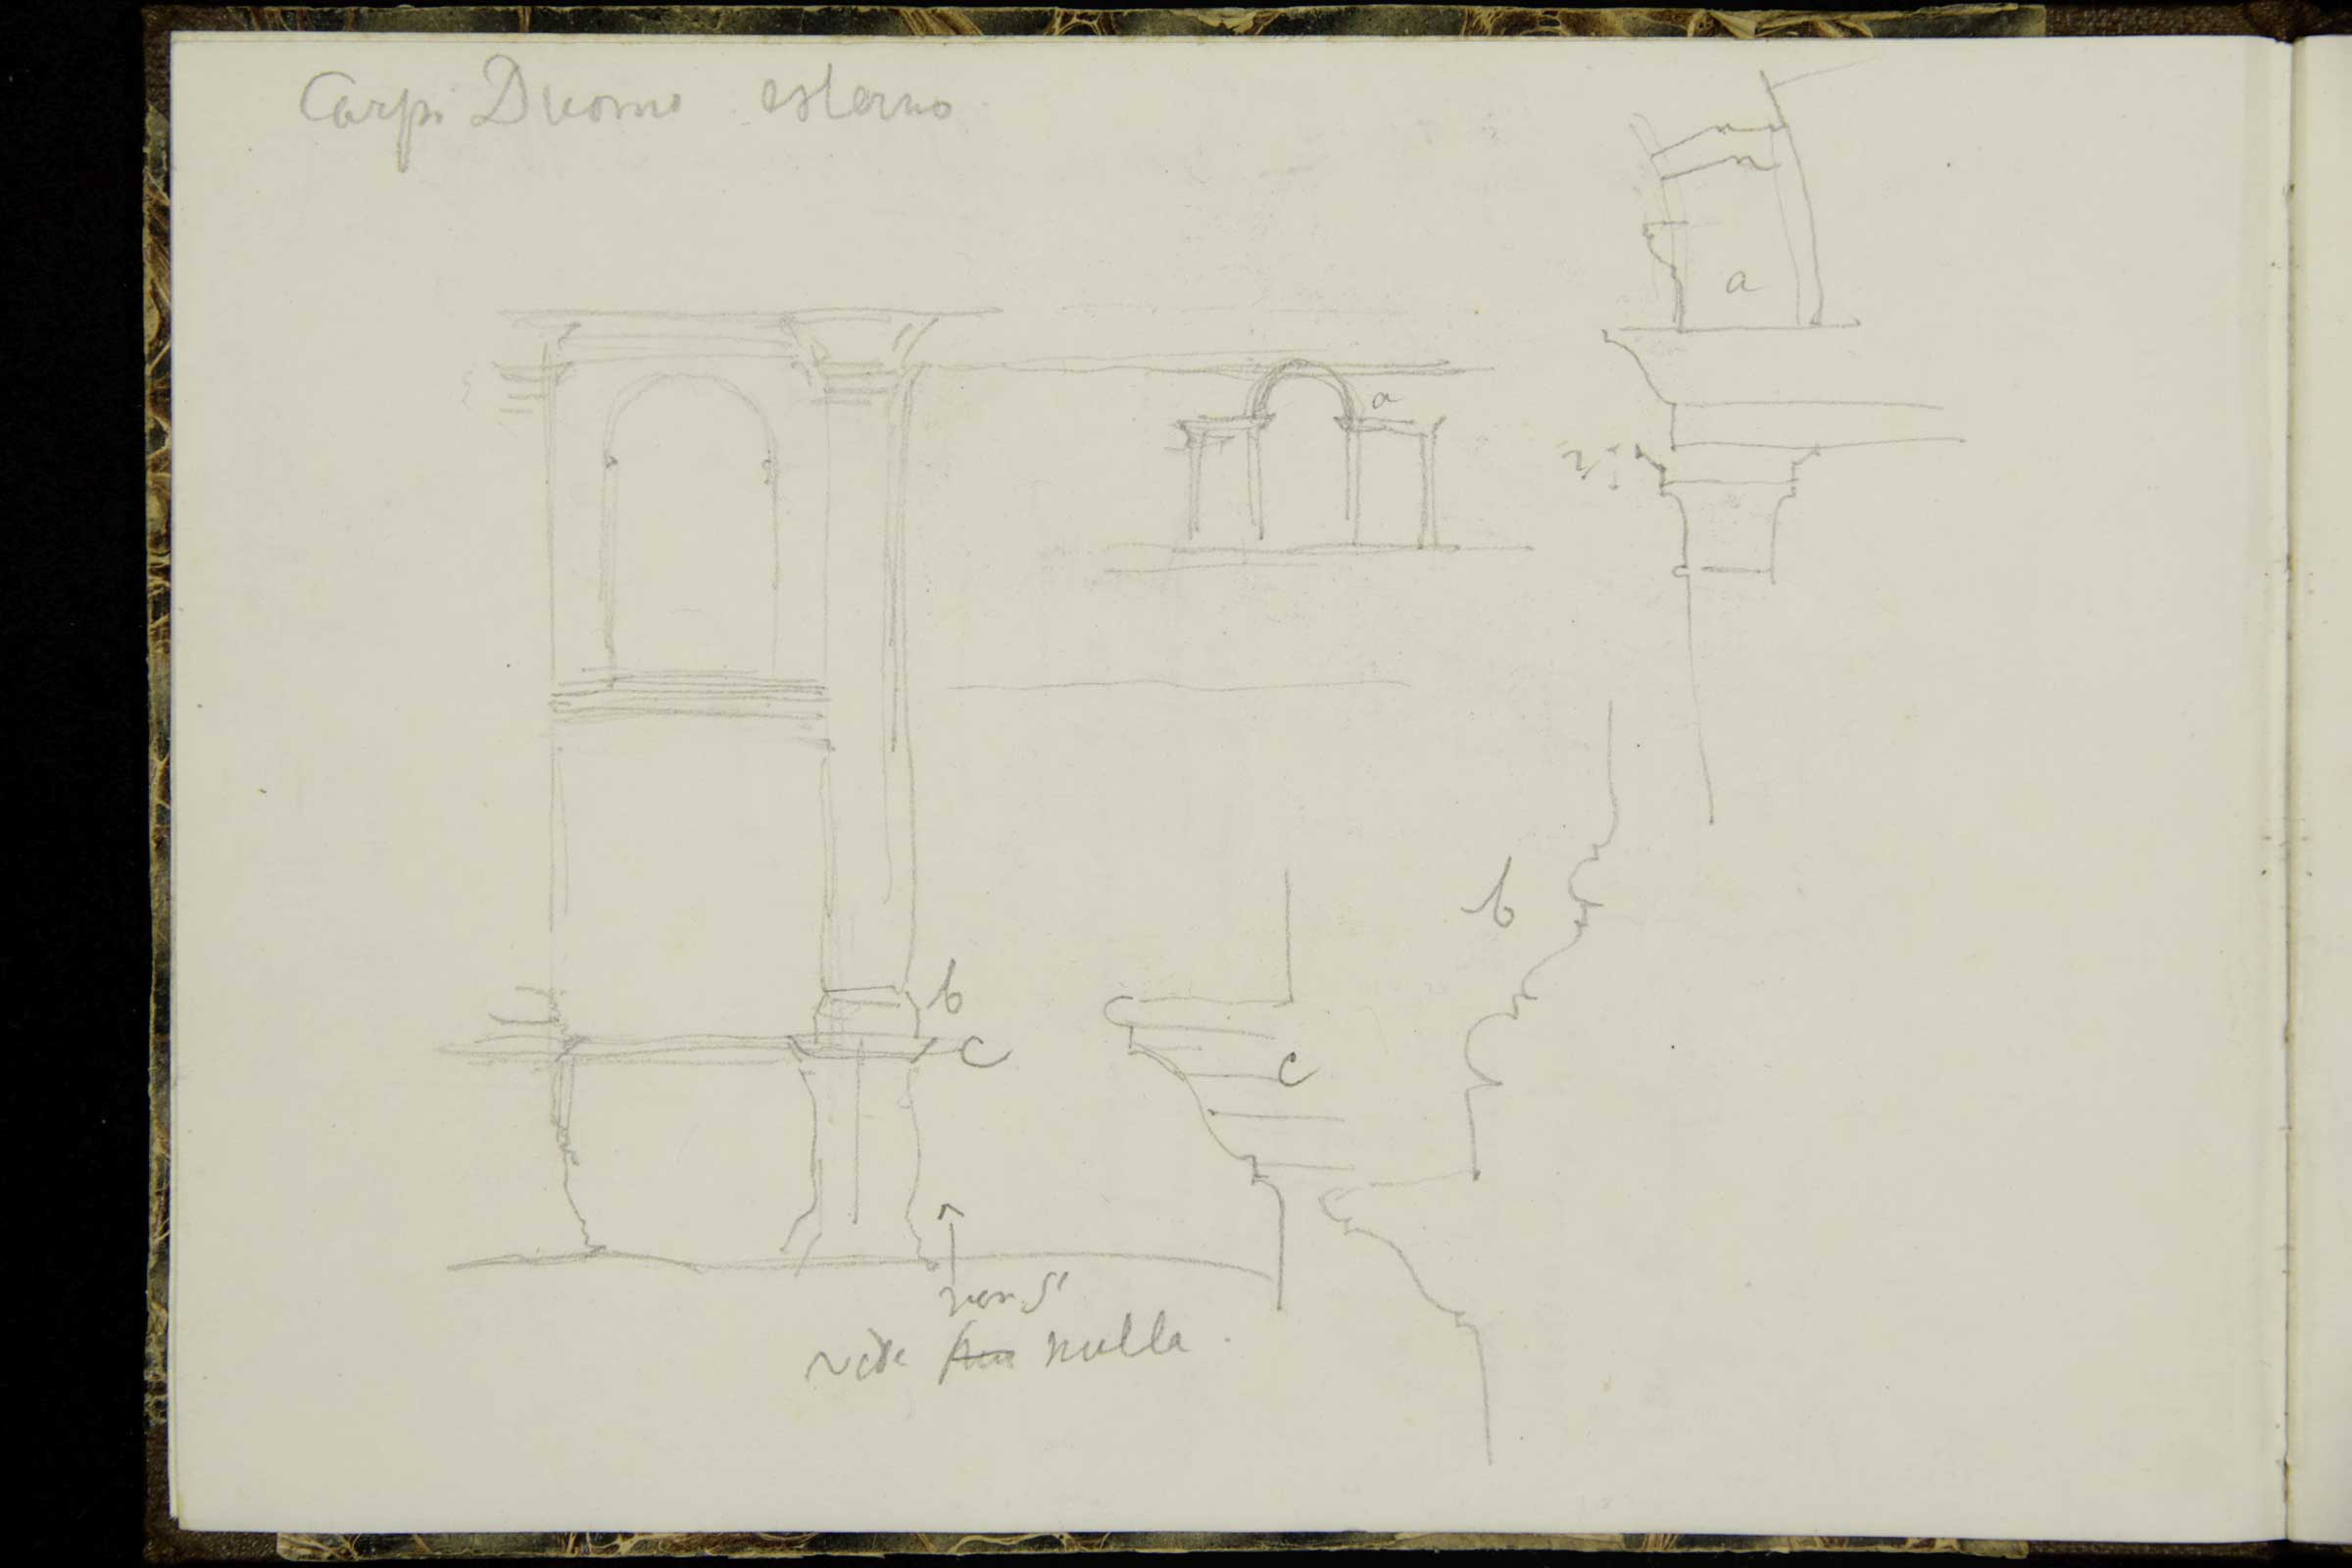 Carpi Duomo esterno
a
a
b
b
c
c
non si
vede nulla.